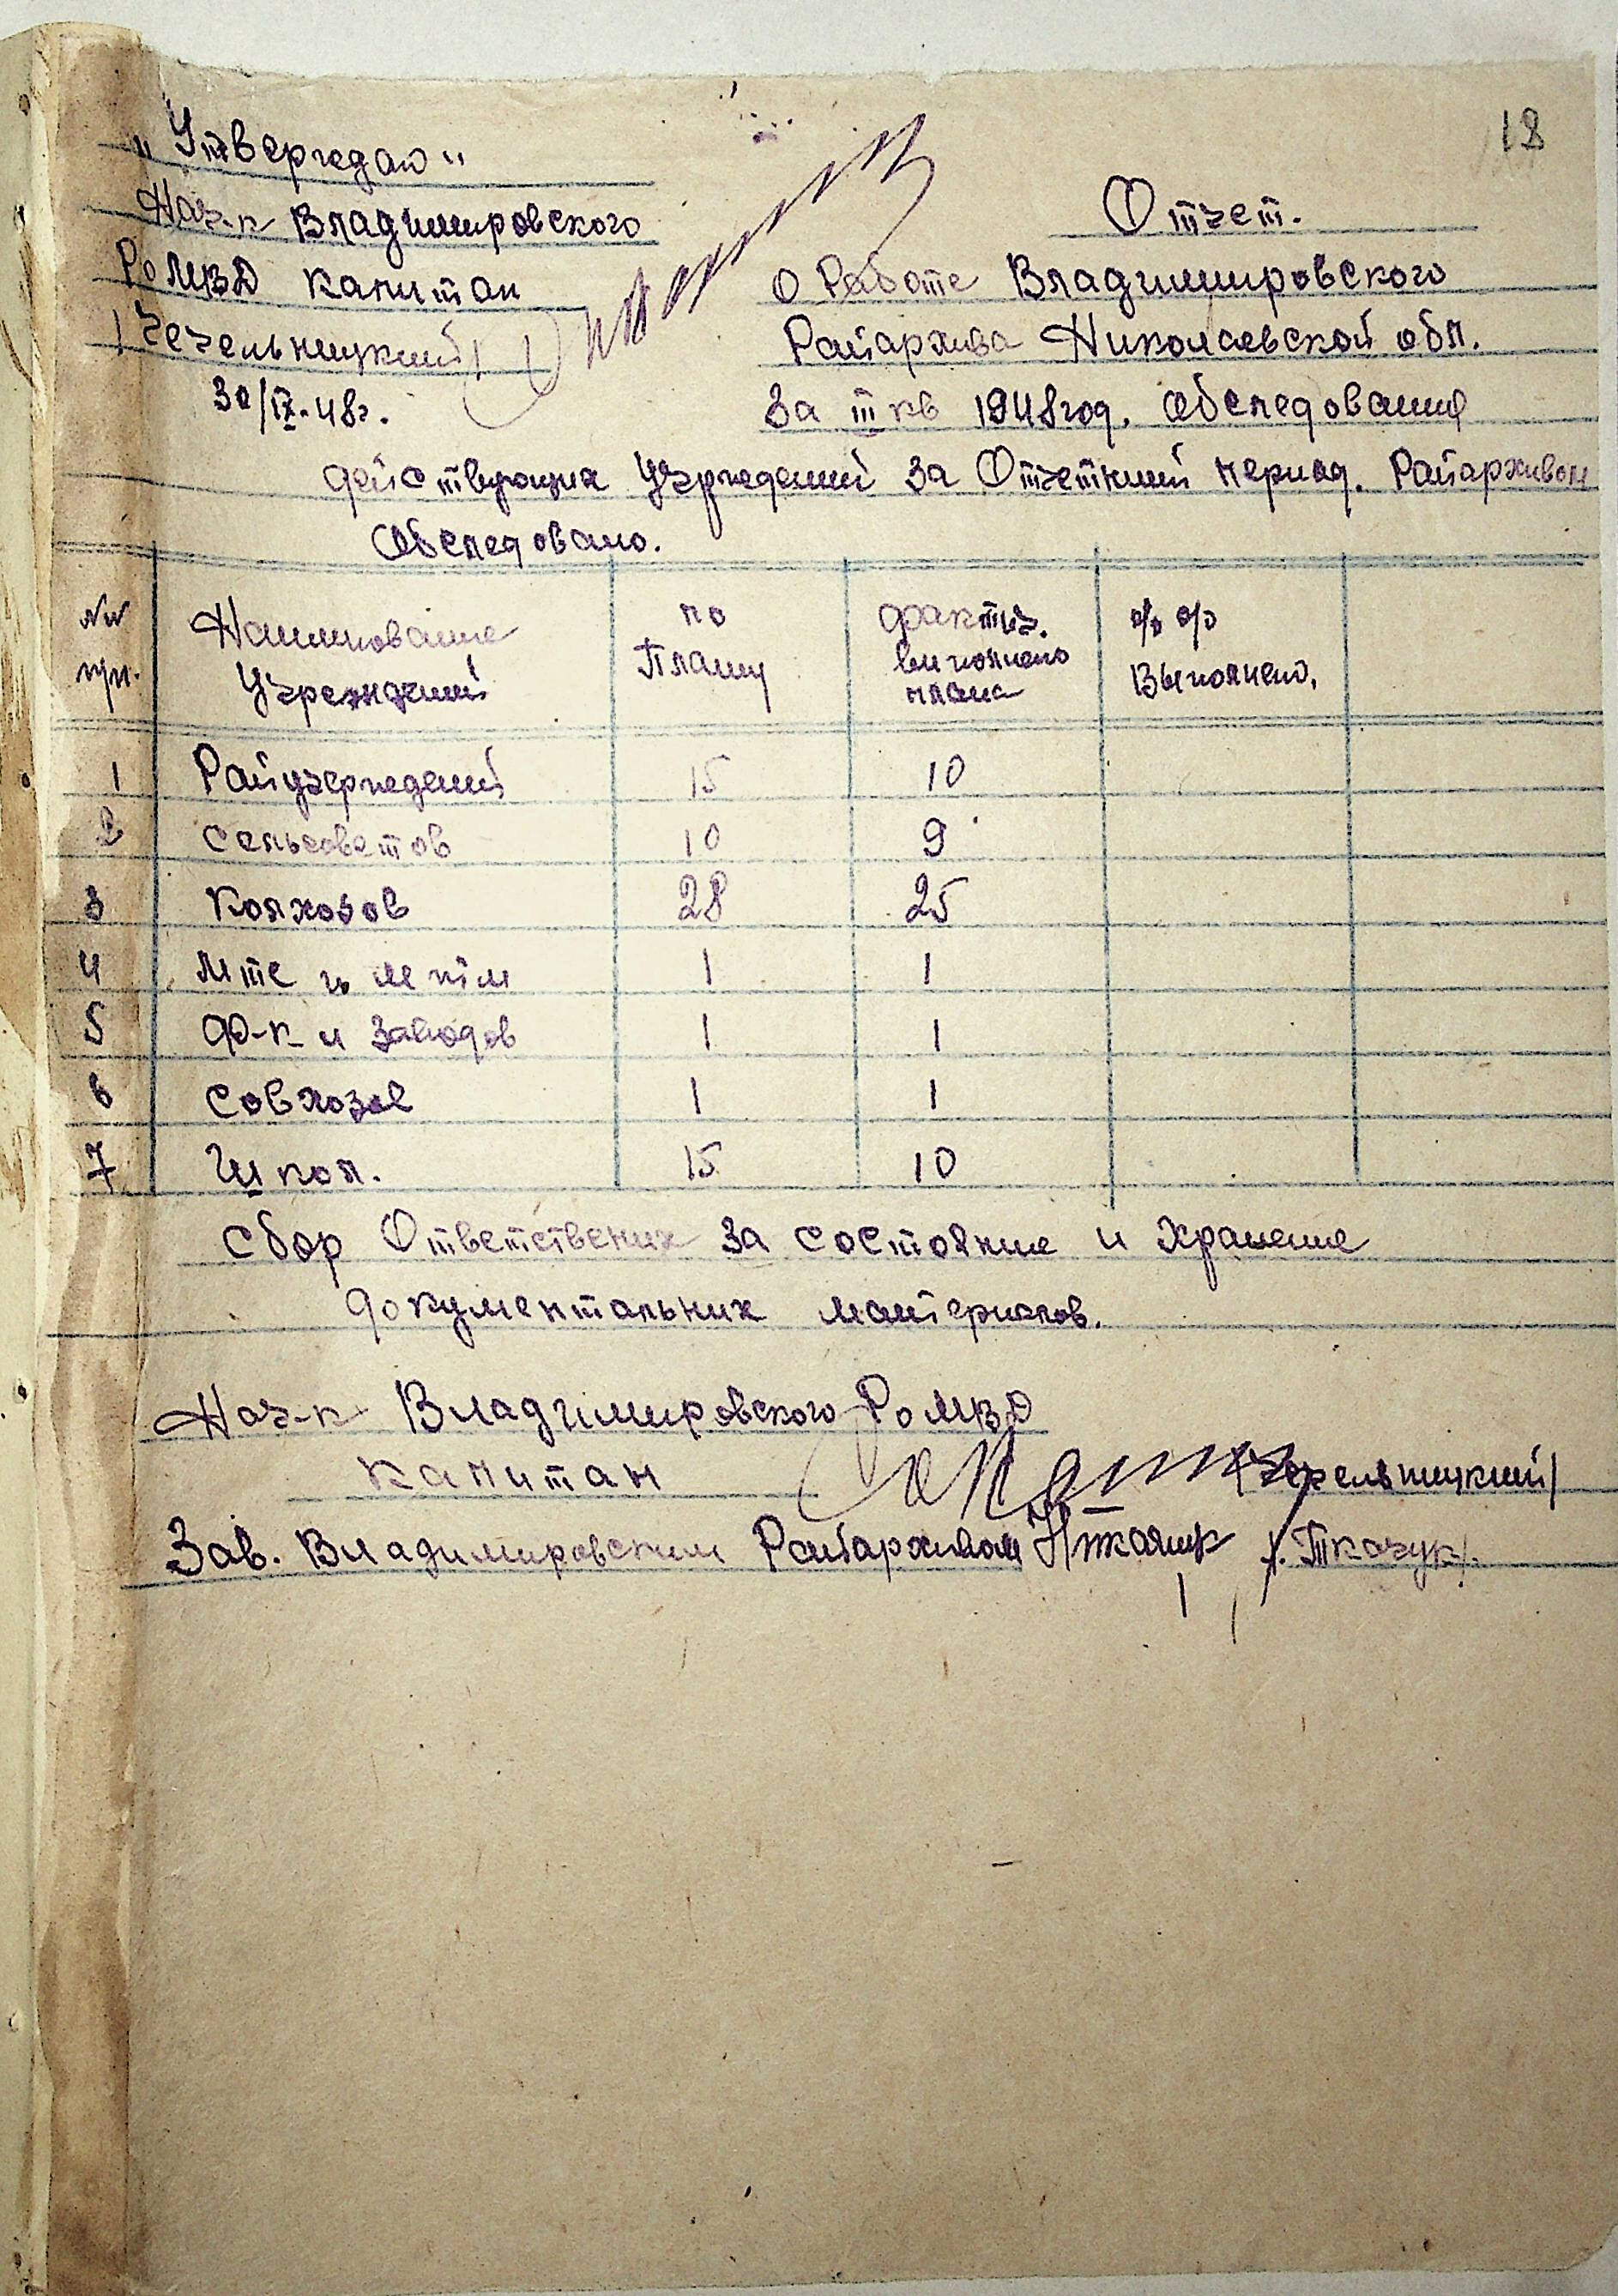 18
„Утверждаю"
Нач-к Владимировского
РоМВД капитан
/Чечельницкий/
30/IX-48г.
Отчет.
О Работе Владимировского
Райархива Николаевской обл.
За III кв 1948 год. Обследования
действующих Учреждений за Отчетний период. Райархивом
Обследовано.
№№ Наименование по фактич. о/о о/о
пп. Учреждений Плану виполнено Выполнено.
плана
1 Райучереждений 15 10
2 Сельсоветов 10 9
3 Колхозов 28 25
4 Мтс и 1 1
5 Ф-к и Заводов 1 1
6 Совхозов 1 1
7 Школ. 15 10
Сбор Ответствених за состояние и Хранение
документальних материалов.
Нач-к Владимировского РоМВД
капитан /Чечельницкий/
Зав. Владимировским Райархивом /Ткачук/.